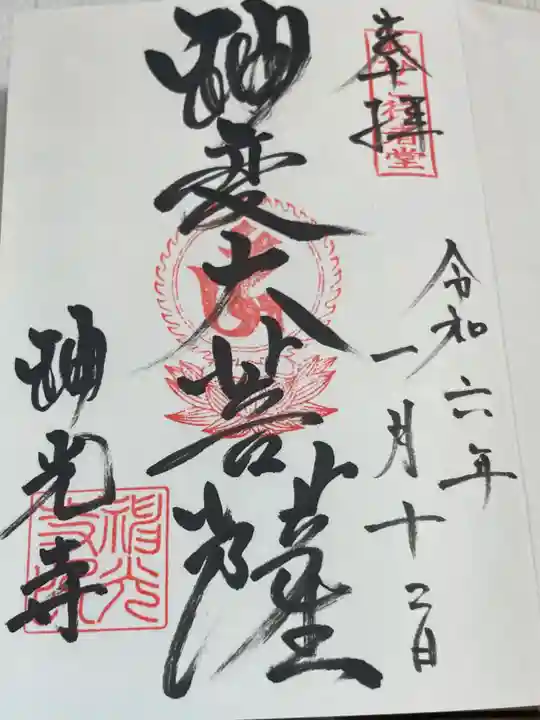 奉拝
行者堂
令和六年
一月十二日
神変大菩薩
神光寺